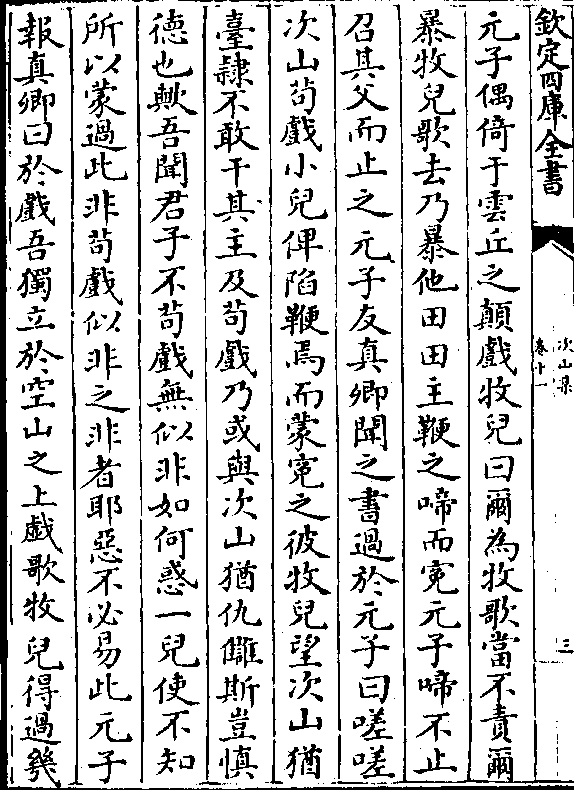 欽定四庫全書
次山集
卷十一
三
元子偶倚于雲丘之顛戲牧兒曰爾為牧歌當不責爾
暴牧兒歌去乃暴他田田主鞭之啼而寃元子啼不止
召其父而止之元子友真卿聞之書過於元子曰嗟嗟
次山茍戲小兒俾陷鞭焉而蒙寃之彼牧兒望次山猶
臺隸不敢干其主及茍戲乃或與次山猶仇讎斯豈慎
德也歟吾聞君子不茍戲無似非如何惑一兒使不知
所以蒙過此非茍戲似非之非者耶惡不必易此元子
報真卿曰於戲吾獨立於空山之上戲歌牧兒得過幾